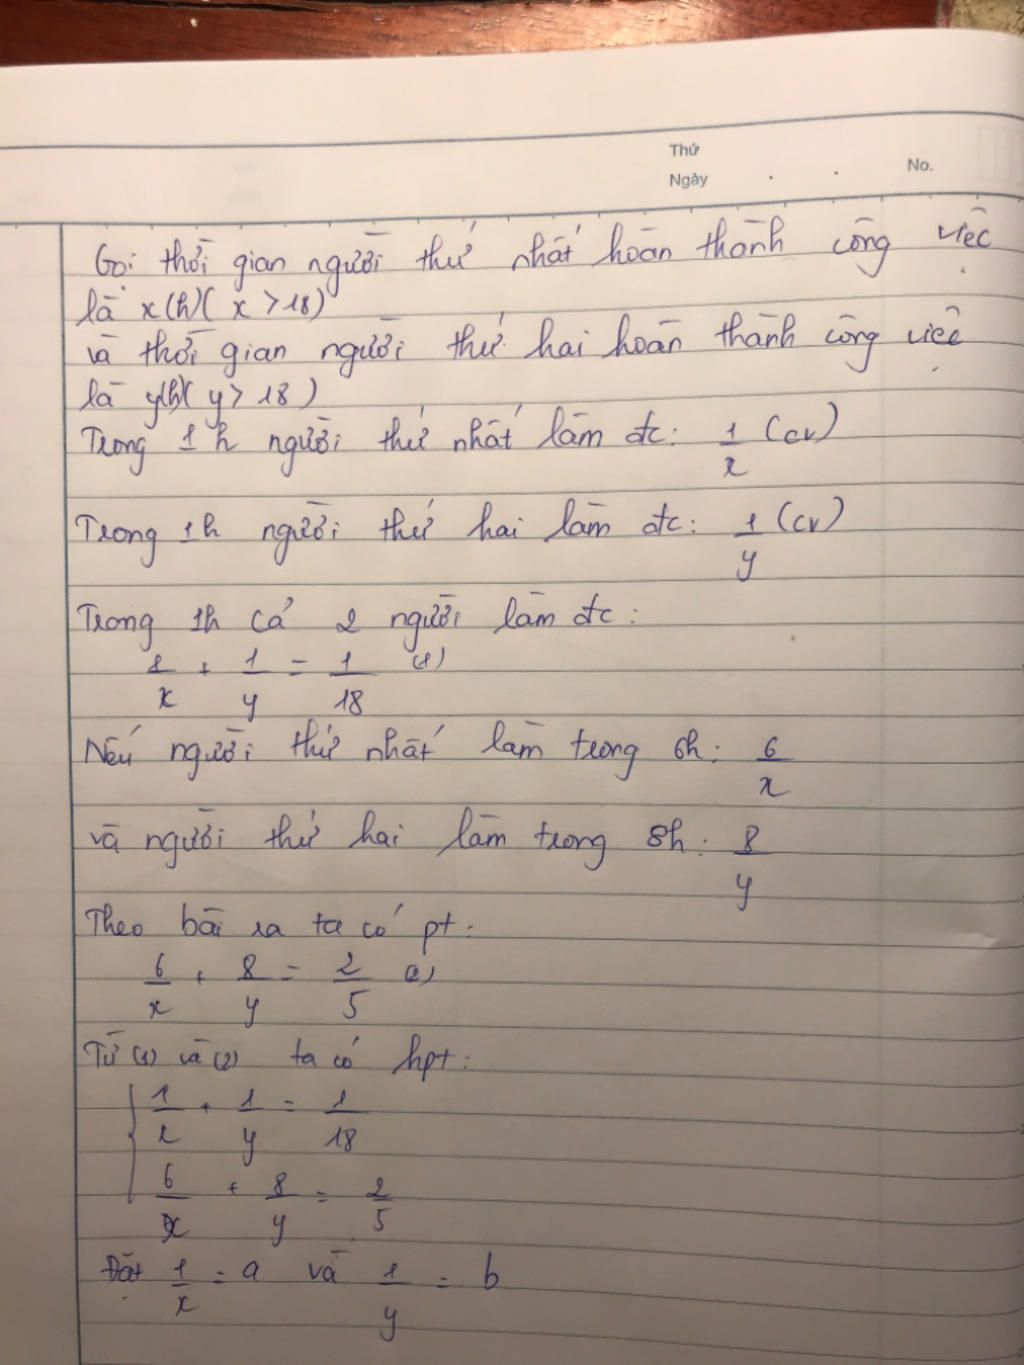 Thứ
Ngày . . No.
Gọi thời gian người thứ nhất hoàn thành công việc
là x(h)( x > 18)
và thời gian người thứ hai hoàn thành công việc
là y(h)( y > 18 )
Trong 1h người thứ nhất làm đc: 1/x (cv)
Trong 1h người thứ hai làm đc: 1/y (cv)
Trong 1h cả 2 người làm đc:
1/x + 1/y = 1/18 (1)
Nếu người thứ nhất làm trong 6h: 6/x
và người thứ hai làm trong 8h: 8/y
Theo bài ra ta có pt:
6/x + 8/y = 2/5 (2)
Từ (1) và (2) ta có hpt:
1/x + 1/y = 1/18
6/x + 8/y = 2/5
Đặt 1/x = a và 1/y = b